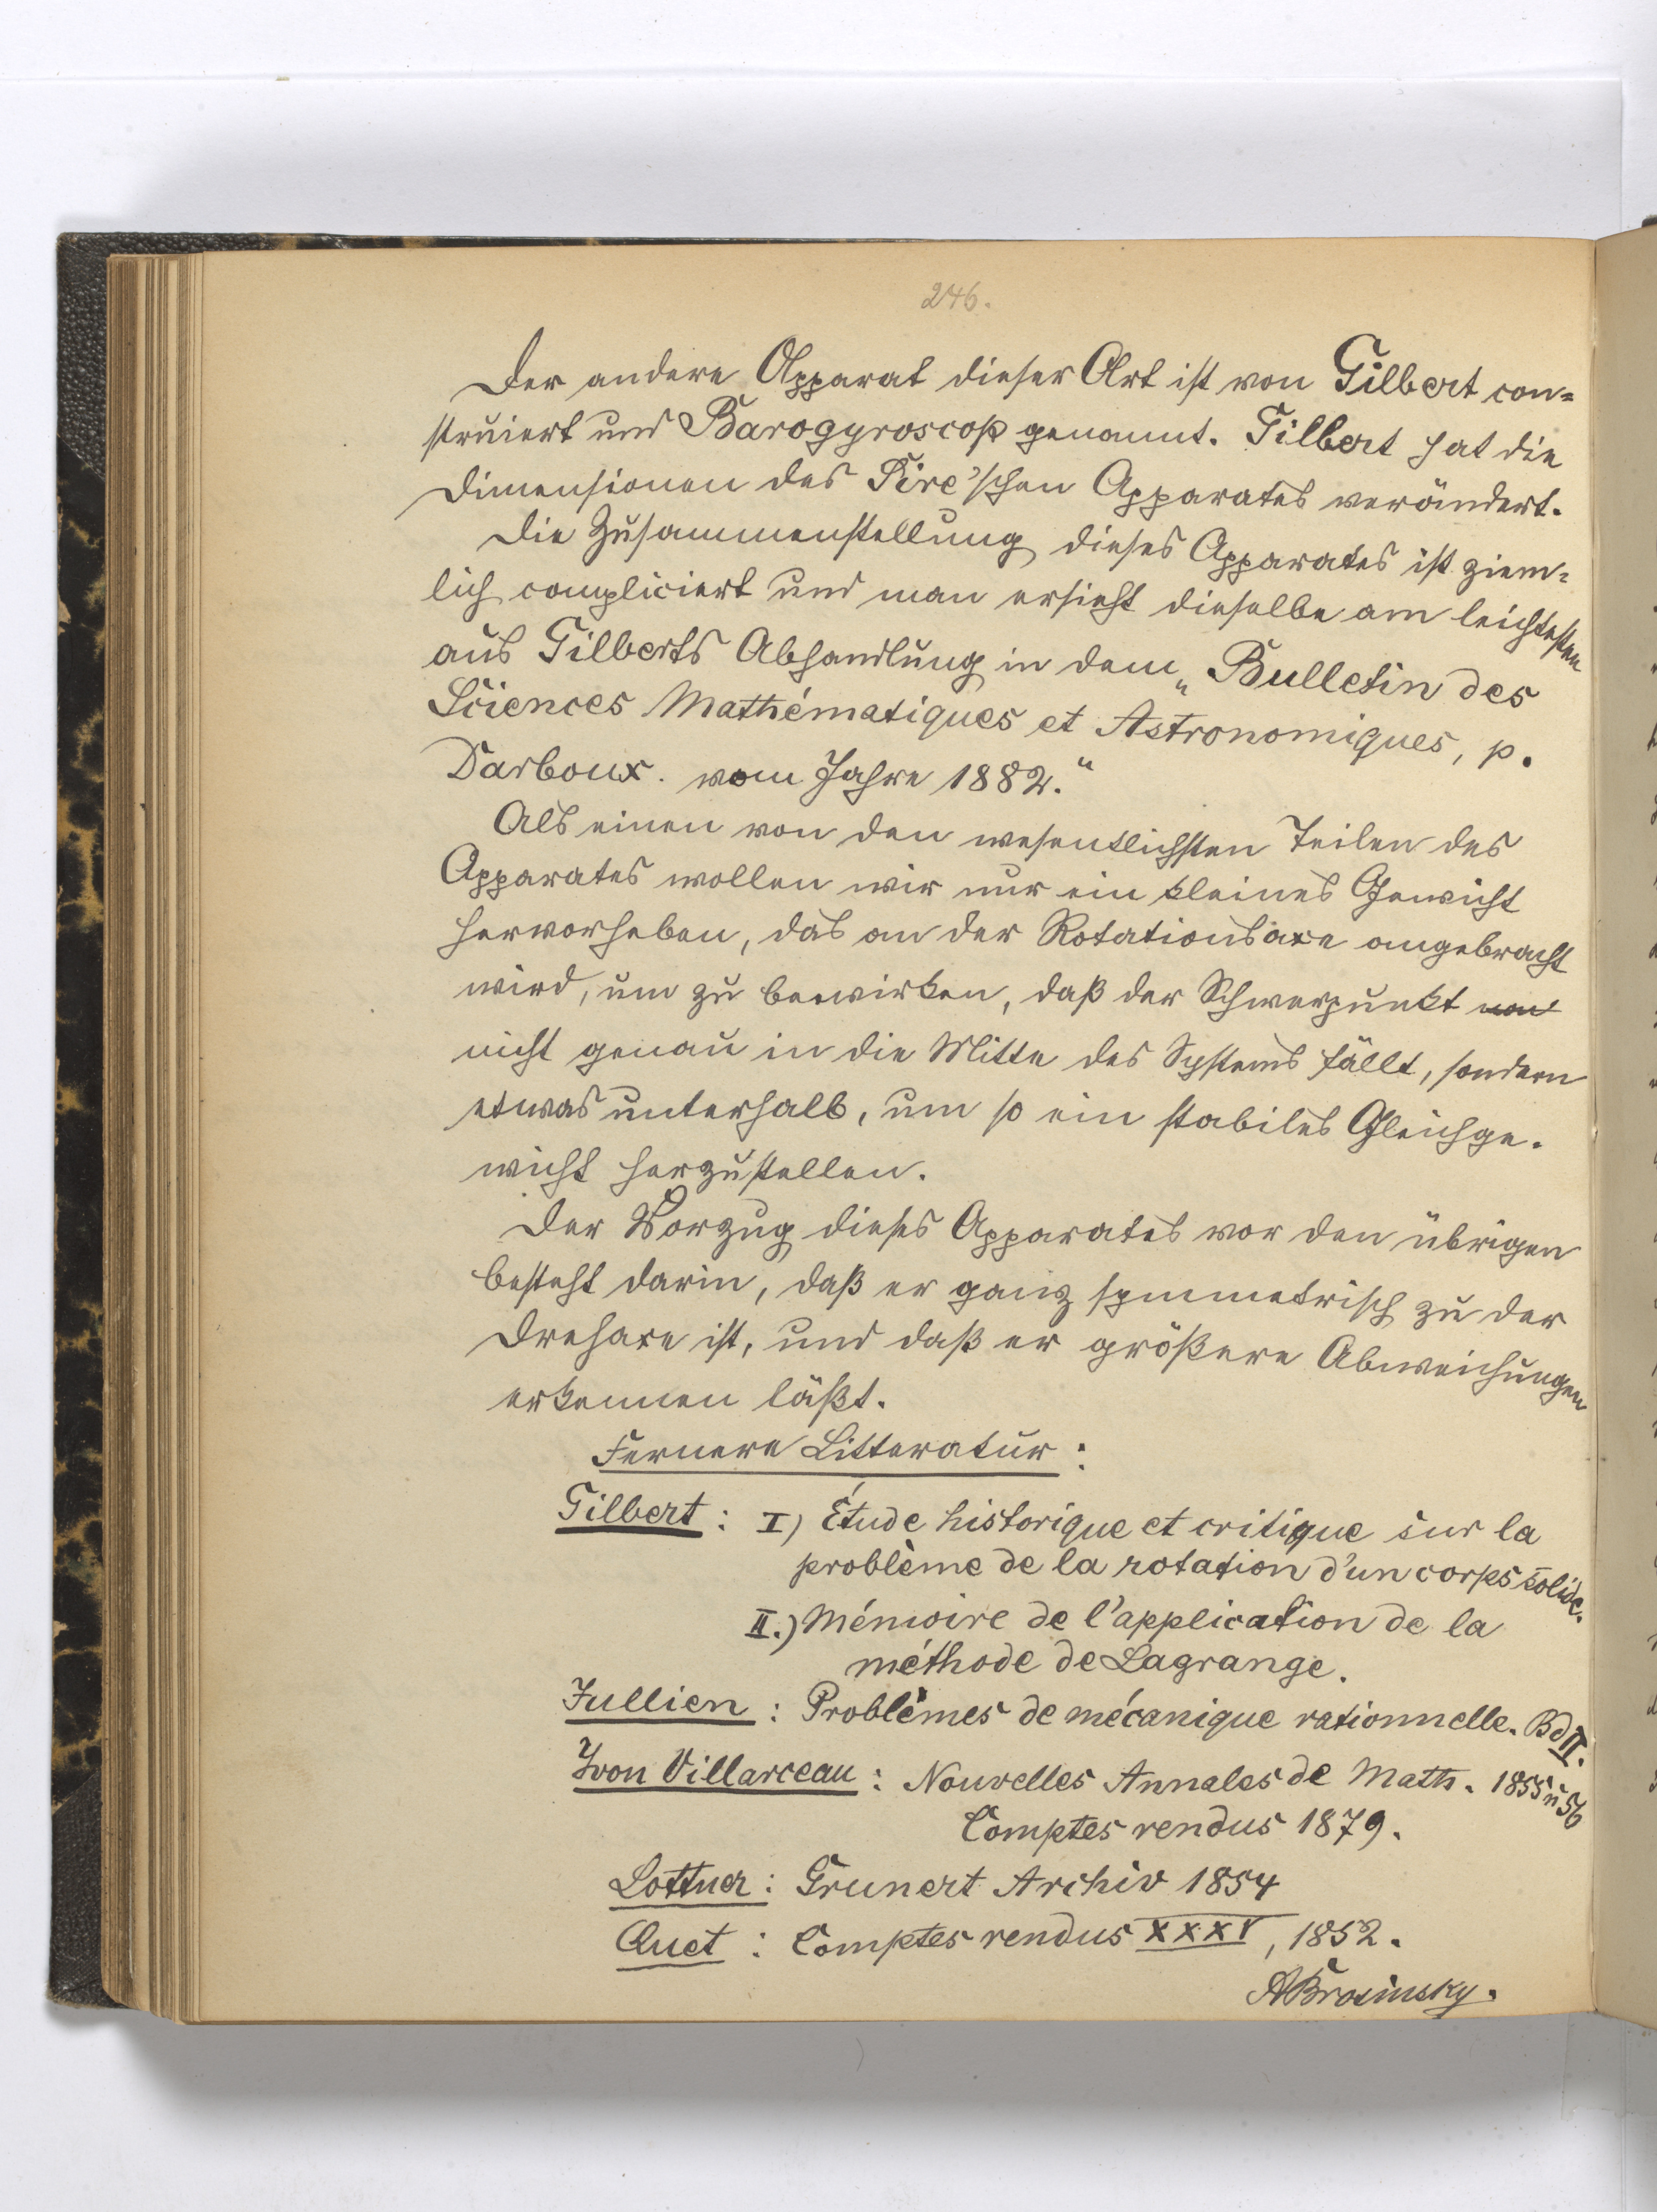 246.
Der andere Apparat dieser Art ist von Gilbert con=
struiert und Barogyroscop genannt. Gilbert hat die
Dimensionen des Sire'schen Apparates verändert.
Die Zusammenstellung dieses Apparates ist ziem=
lich compliciert und man ersieht dieselbe am leichtesten
aus Gilberts Abhandlung in dem „Bulletin des
Sciences Mathématiques et Astronomiques, p.
Darboux. vom Jahre 1882.“
Als einen von den wesentlichsten Teilen des
Apparates wollen wir nur ein kleines Gewicht
hervorheben, das an der Rotationsaxe angebracht
wird, um zu bewirken, daß der Schwerpunkt
nicht genau in die Mitte des Systems fällt, sondern
etwas unterhalb, um so ein stabiles Gleichge-
wicht herzustellen.
Der Vorzug dieses Apparates vor den übrigen
besteht darin, daß er ganz symmetrisch zu der
Drehaxe ist, und daß er größere Abweichungen
erkennen läßt.
Fernere Litteratur:
Gilbert: I) Étude historique et critique sur la
problème de la rotation d'un corps solide.
II.) Mémoire de l'application de la
méthode de Lagrange.
Jullien: Problèmes de mécanique rationnelle. Bd II.
Yvon Villarceau: Nouvelles Annales de Math. 1855 u 56
Comptes rendus 1879.
Lottner: Grunert Archiv 1854
Quet: Comptes rendus XXXV, 1852.
ABrosinsky.